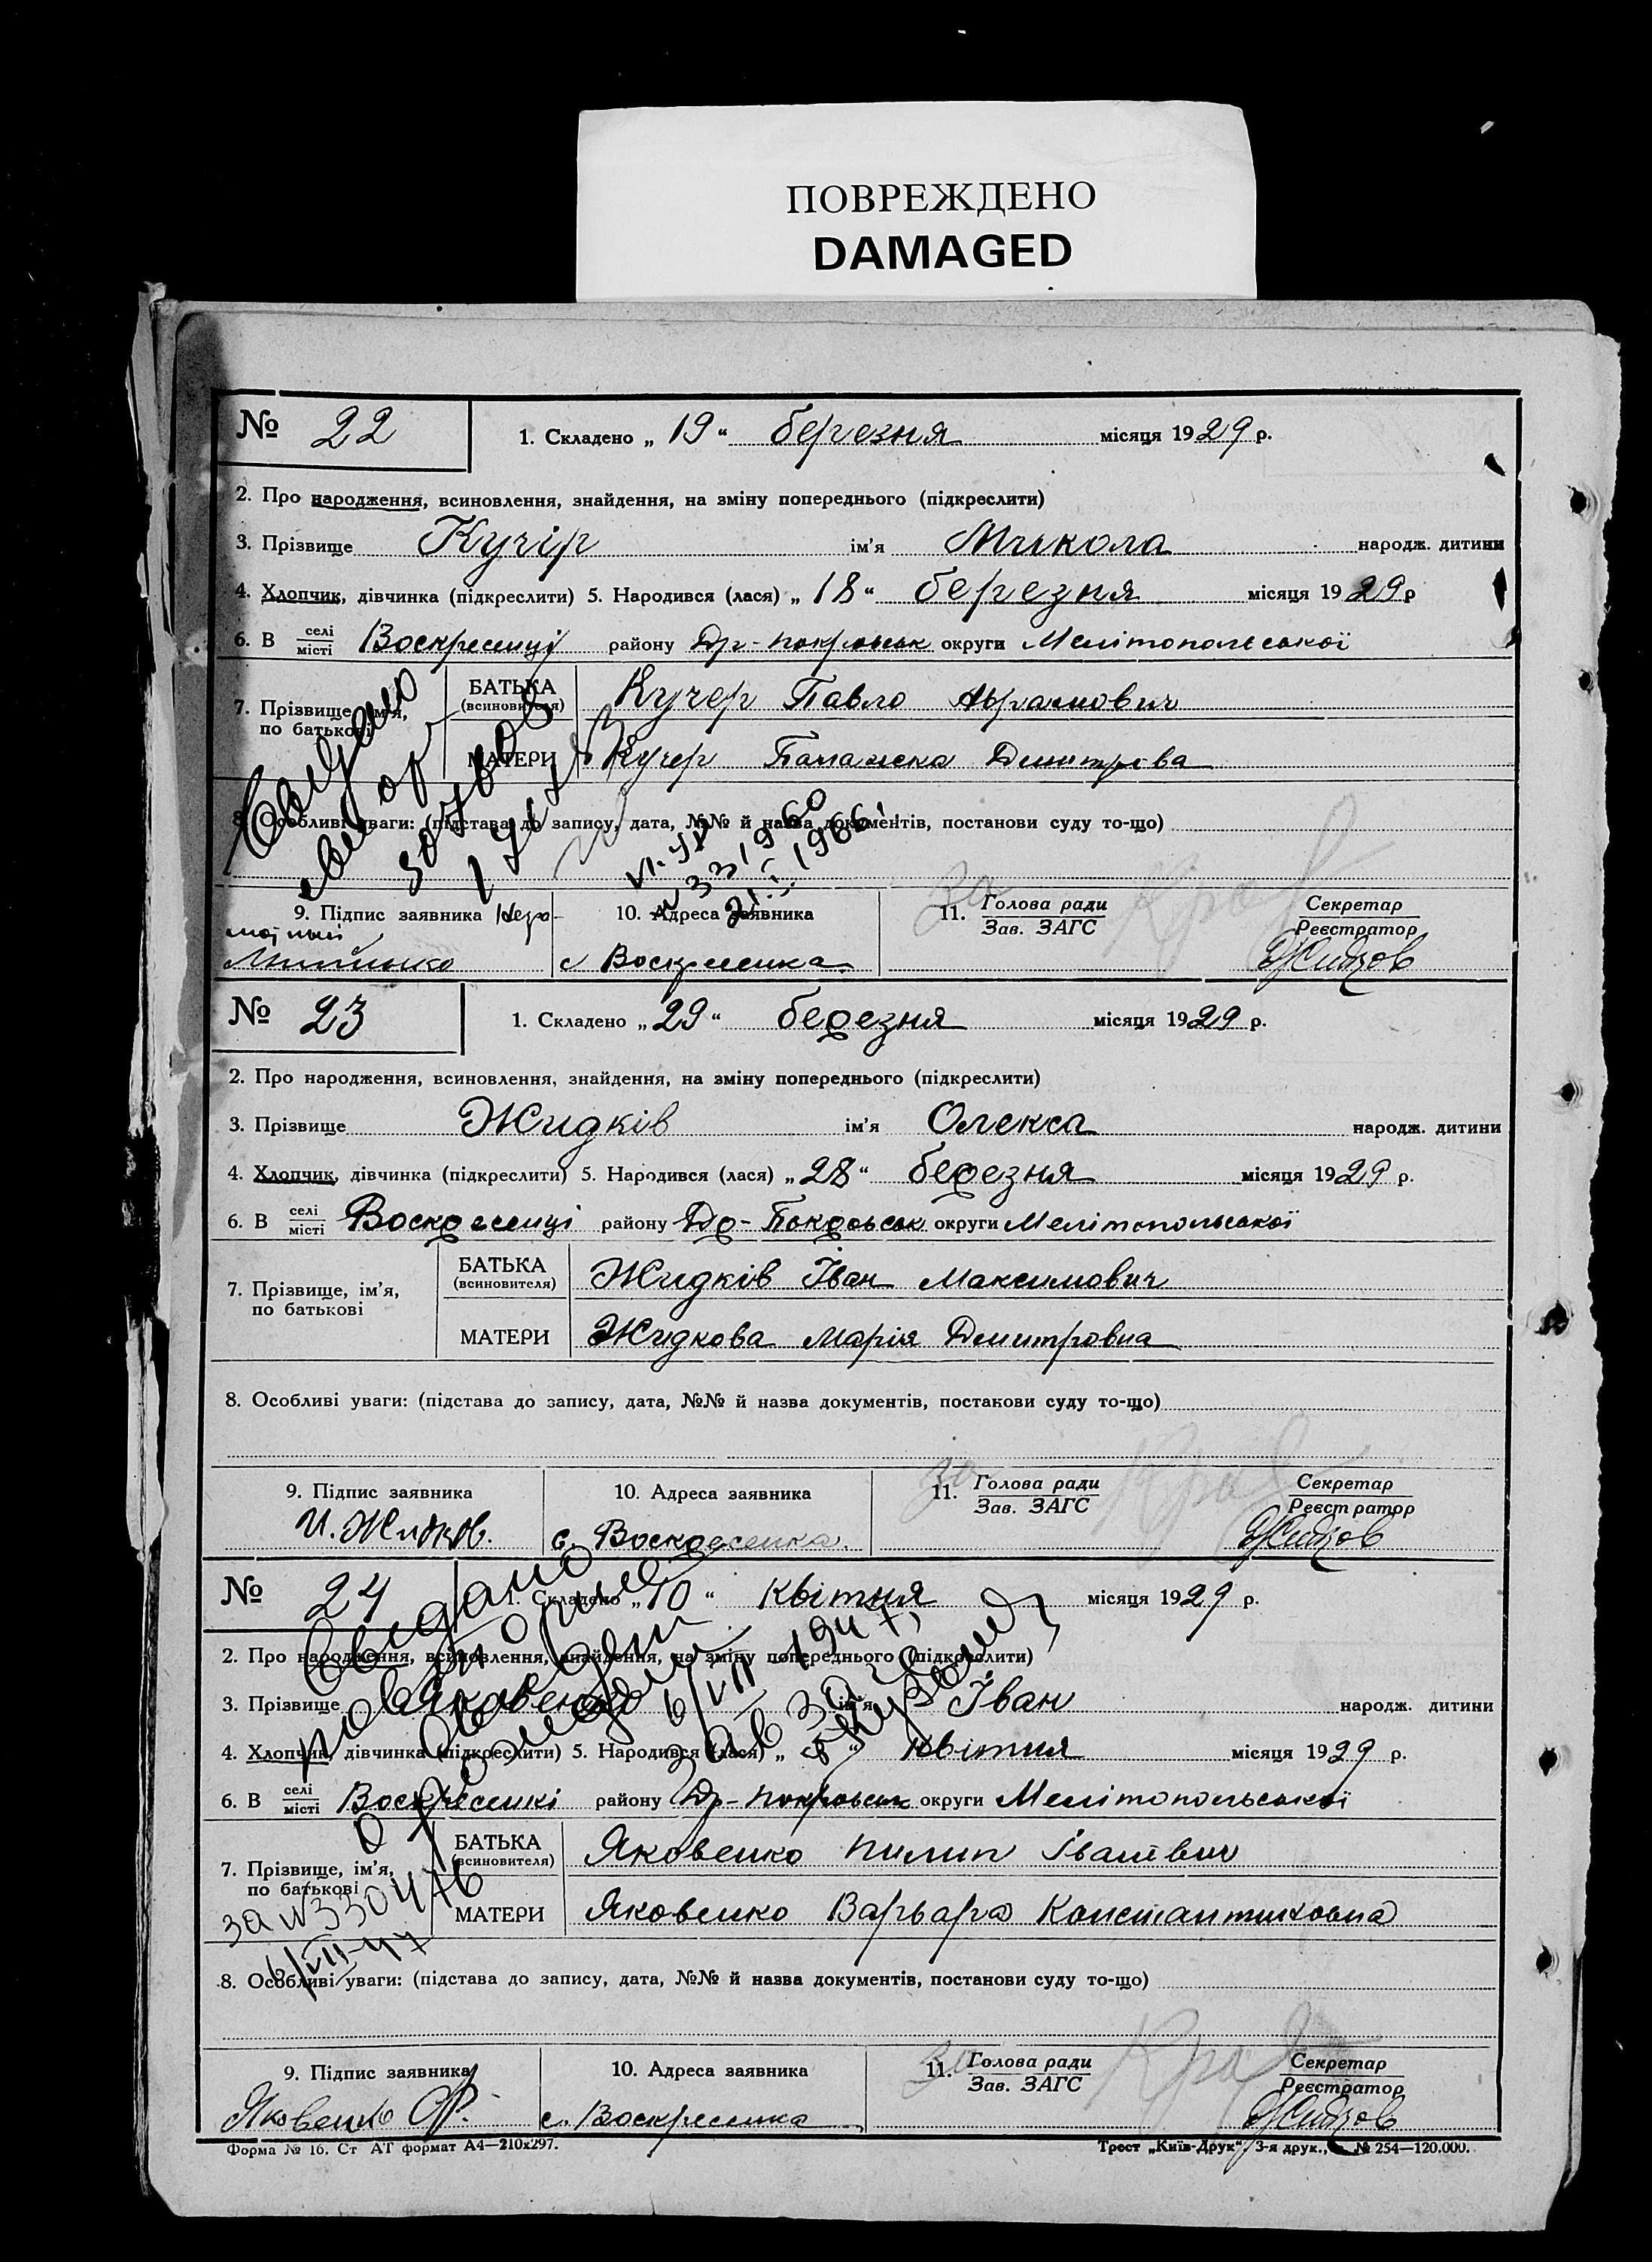 ПОВРЕЖДЕНО
DAMAGED
№ 22 1. Складено „ 19 “ березня місяця 1929 р.
2. Про народження, всиновлення, знайдення, на зміну попереднього (підкреслити)
3. Прізвище Кучір ім'я Микола народж. дитини
4. Хлопчик, дівчинка (підкреслити) 5. Народився (лася) „ 18 “ березня місяця 1929 р
6. В селі місті Воскресенці району Др-Покровськ округи Мелітопольської
7. Прізвище, ім'я, по батькові
БАТЬКА (всиновителя) Кучер Павло Абрамович
МАТЕРИ Кучер Дмитрова
8. Особливі уваги: (підстава до запису, дата, №№ й назва документів, постанови суду то-що)
21.I.1966
9. Підпис заявника 10. Адреса заявника 11. Голова ради Зав. ЗАГС Секретар Реєстратор
с Воскресенка Жидков
№ 23 1. Складено „ 29 “ березня місяця 1929 р.
2. Про народження, всиновлення, знайдення, на зміну попереднього (підкреслити)
3. Прізвище Жидків ім'я Олекса народж. дитини
4. Хлопчик, дівчинка (підкреслити) 5. Народився (лася) „ 28 “ березня місяця 1929 р.
6. В селі місті Воскресенці району Др-Покровськ округи Мелітопольської
7. Прізвище, ім'я, по батькові
БАТЬКА (всиновителя) Жидків Іван Максимович
МАТЕРИ Жидкова Марія Дмитровна
8. Особливі уваги: (підстава до запису, дата, №№ й назва документів, постанови суду то-що)
9. Підпис заявника 10. Адреса заявника 11. За Голова ради Зав. ЗАГС Секретар Реєстратор
И. Жидков. с. Воскресенка. Жидков
№ 24 1. Складено „ 10 “ квітня місяця 1929 р.
2. Про народження, всиновлення, знайдення, на зміну попереднього (підкреслити)
3. Прізвище Яковенко ім'я Іван народж. дитини
4. Хлопчик, дівчинка (підкреслити) 5. Народився (лася) „ 8 “ квітня місяця 1929 р.
6. В селі місті Воскресенкі району Др-Покровськ округи Мелітопольської
Выдано повторное
о рождении
6/VII 1947
за № 330476
6/VII-47
7. Прізвище, ім'я, по батькові
БАТЬКА (всиновителя) Яковенко Пилип Іванович
МАТЕРИ Яковенко Варвара Константиновна
8. Особливі уваги: (підстава до запису, дата, №№ й назва документів, постанови суду то-що)
9. Підпис заявника 10. Адреса заявника 11. За Голова ради Зав. ЗАГС Секретар Реєстратор
Яковенко с. Воскресенка Жидков
Форма № 16. Ст АТ формат А4—210х297. Трест „Київ-Друк“, 3-я друк., № 254—120.000.